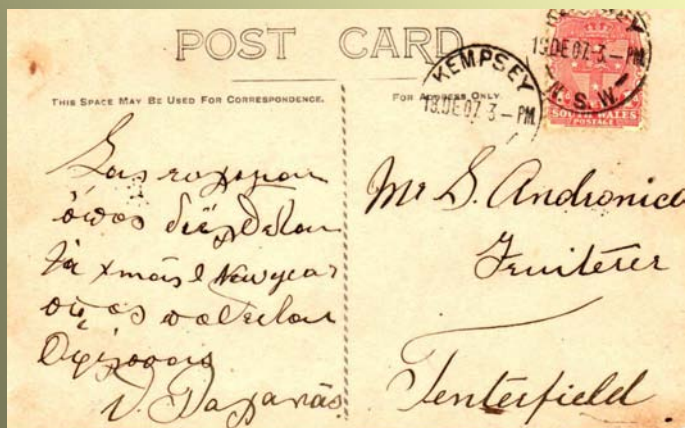 POST CARD
THIS SPACE MAY BE USED FOR CORRESPONDENCE.
FOR ADDRESS ONLY
KEMPSEY
19.DE.07. 3 – PM.
KEMPSEY
19.DE.07. 3 – PM.
N.S.W.
SOUTH WALES
POSTAGE
Σας ευχομαι
όπως διέλθεται
τα Xmas & New year
οπως ποθειται
Mr S. Andronico
Fruiterer
Tenterfield